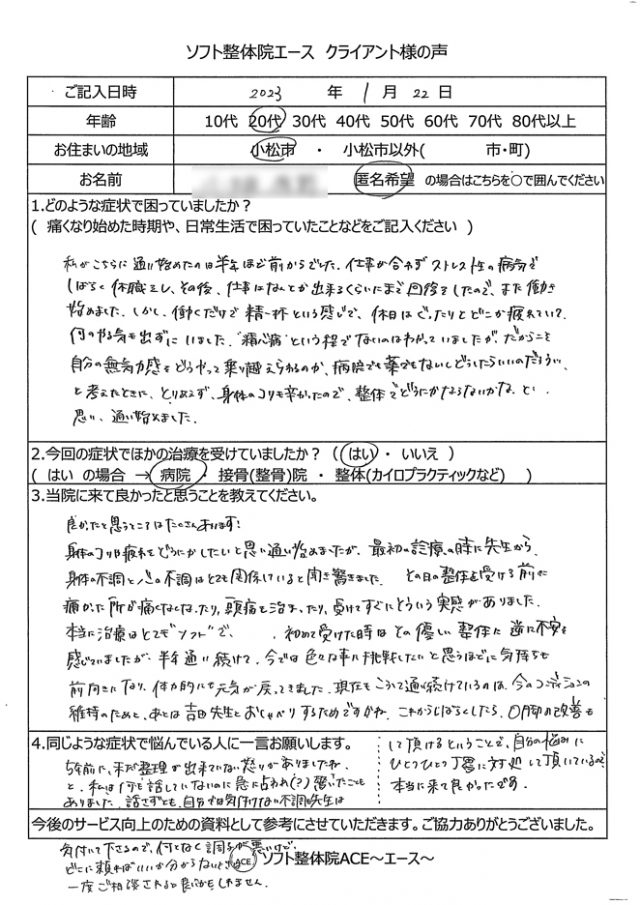 ソフト整体院エース クライアント様の声
ご記入日時 2023 年 1 月 22 日
年齢 10代 20代 30代 40代 50代 60代 70代 80代以上
お住まいの地域 小松市 ・ 小松市以外( 市・町)
お名前 匿名希望 の場合はこちらを○で囲んでください
1.どのような症状で困っていましたか?
( 痛くなり始めた時期や、日常生活で困っていたことなどをご記入ください )
私がこちらに通い始めたのは半年ほど前からでした。仕事が合わずストレス性の病気で
しばらく休職をし、その後、仕事はなんとか出来るくらいにまで回復をしたので、また働き
始めました。しかし、働くだけで精一杯という感じで、休日はぐったりとどこか疲れていて、
何のやる気も出ずにいました。
自分の無気力感をどうやって乗り越えられるのか、病院でも薬でもないしどうしたらいいのだろう
と考えたときに、とりあえず、身体のコリも辛かったので、整体でどうにかならないかな、と
思い、通い始めました。
2.今回の症状でほかの治療を受けていましたか? ( はい ・ いいえ )
( はい の場合 → 病院 ・ 接骨(整骨)院 ・ 整体(カイロプラクティックなど) )
3.当院に来て良かったと思うことを教えてください。
良かったと思うところはたくさんあります!
身体のコリや疲れをどうにかしたいと思い通い始めましたが、最初の診療の時に先生から、
身体の不調と心の不調はとても関係していると聞き驚きました。その日の整体を受ける前に
痛かった所が痛くなくなったり、頭痛も治まったり、受けてすぐにそういう実感がありました。
本当に治療はとても“ソフト”で、初めて受けた時はその優しい整体に逆に不安を
感じていましたが、半年通い続けて、今では色々な事に挑戦したいと思うほどに気持ちも
前向きになり、体力的にも元気が戻ってきました。現在もこうして通い続けているのは、今のコンディションの
維持のためと、あとは吉田先生とおしゃべりするためですかね。これからしばらくしたら、O脚の改善も
して頂けるということで、自分の悩みに
ひとつひとつ丁寧に対処して頂いているので
本当に来て良かったです。
4.同じような症状で悩んでいる人に一言お願いします。
と、私は何も話していないのに急に占われ(?)驚いたことも
ありました。話さずとも、自分では気付けない不調も先生は
今後のサービス向上のための資料として参考にさせていただきます。ご協力ありがとうございました。
気付いて下さるので、何となく調子が悪いけど、
どこに頼ればいいか分からないときは
ACE ソフト整体院ACE～エース～
一度ご相談されると良いかもしれません。